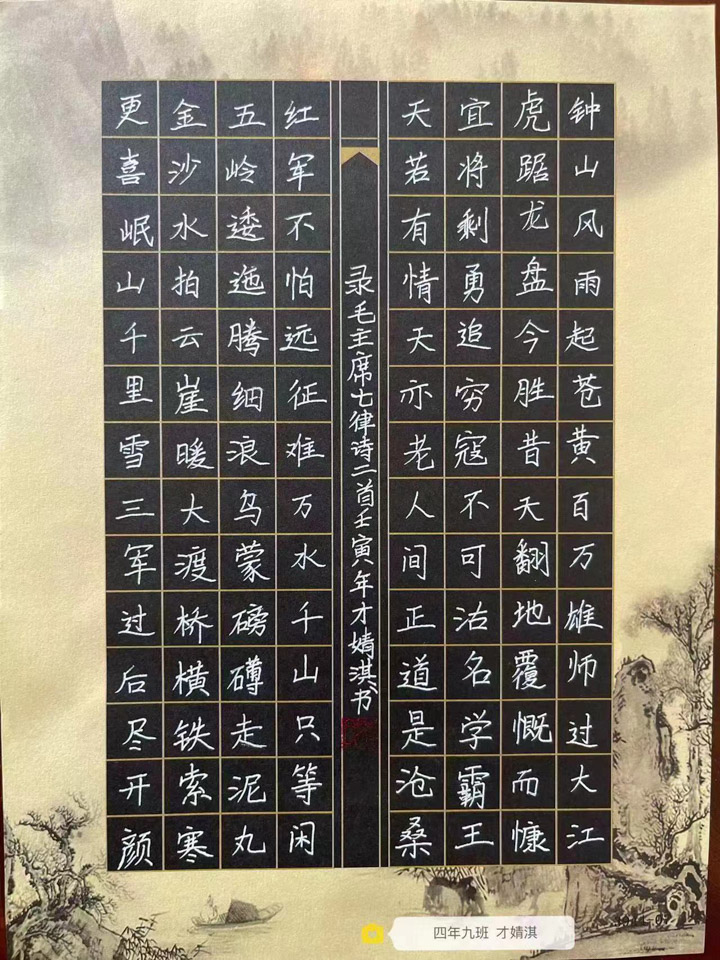 钟山风雨起苍黄百万雄师过大江
虎踞龙盘今胜昔天翻地覆慨而慷
宜将剩勇追穷寇不可沽名学霸王
天若有情天亦老人间正道是沧桑
录毛主席七律诗二首壬寅年才婧淇书
红军不怕远征难万水千山只等闲
五岭逶迤腾细浪乌蒙磅礴走泥丸
金沙水拍云崖暖大渡桥横铁索寒
更喜岷山千里雪三军过后尽开颜
四年九班 才婧淇